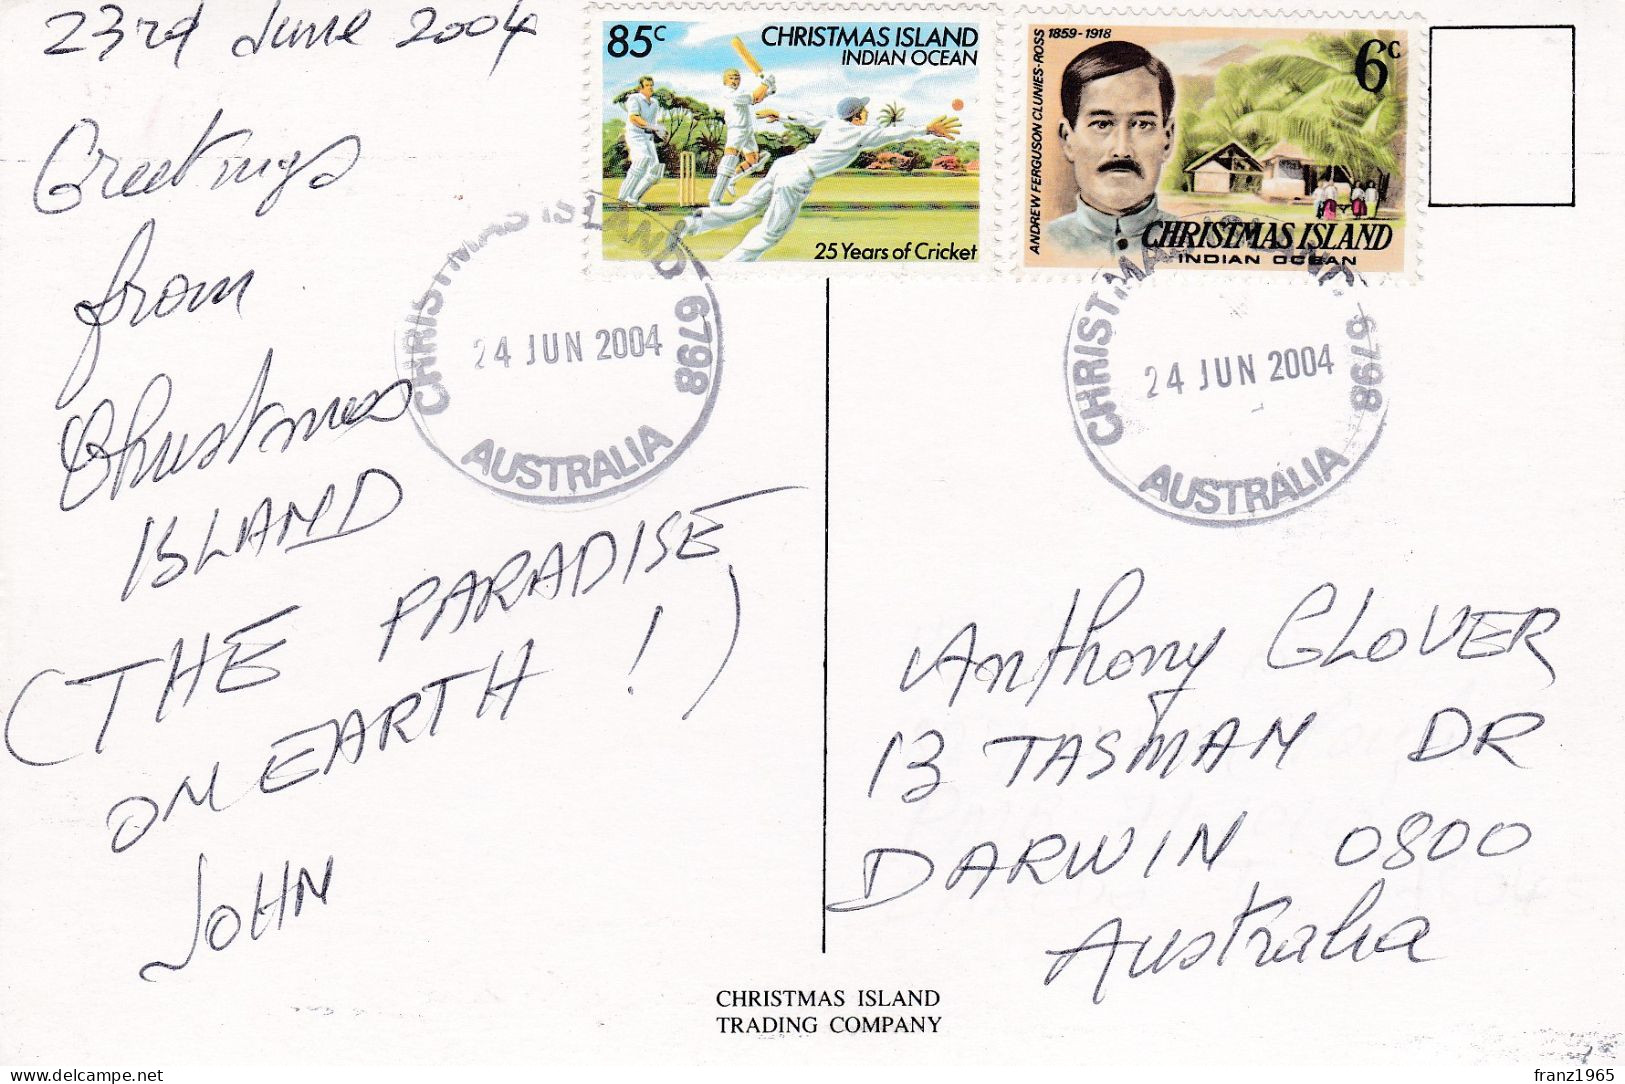 23rd June 2004
Greetings
from
Christmas
ISLAND
(THE PARADISE
ON EARTH !)
JOHN
85c
CHRISTMAS ISLAND
INDIAN OCEAN
25 Years of Cricket
ANDREW FERGUSON CLUNIES-ROSS 1859-1918
6c
CHRISTMAS ISLAND
INDIAN OCEAN
CHRISTMAS ISLAND 6798
24 JUN 2004
AUSTRALIA
CHRISTMAS ISLAND 6798
24 JUN 2004
AUSTRALIA
Anthony GLOVER
13 TASMAN DR
DARWIN 0800
Australia
CHRISTMAS ISLAND
TRADING COMPANY
delcampe.net
franz1965